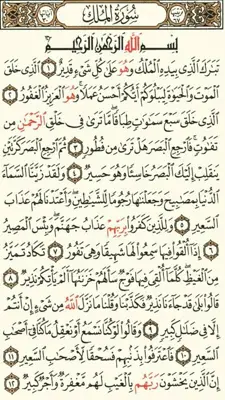 سُورَةُ المُلْكِ
بِسْمِ اللَّهِ الرَّحْمَٰنِ الرَّحِيمِ
تَبَٰرَكَ ٱلَّذِي بِيَدِهِ ٱلْمُلْكُ وَهُوَ عَلَىٰ كُلِّ شَيْءٍ قَدِيرٌ ١ ٱلَّذِي خَلَقَ
ٱلْمَوْتَ وَٱلْحَيَوٰةَ لِيَبْلُوَكُمْ أَيُّكُمْ أَحْسَنُ عَمَلًا وَهُوَ ٱلْعَزِيزُ ٱلْغَفُورُ ٢
ٱلَّذِي خَلَقَ سَبْعَ سَمَٰوَٰتٍ طِبَاقًا مَّا تَرَىٰ فِي خَلْقِ ٱلرَّحْمَٰنِ مِن
تَفَٰوُتٍ فَٱرْجِعِ ٱلْبَصَرَ هَلْ تَرَىٰ مِن فُطُورٍ ٣ ثُمَّ ٱرْجِعِ ٱلْبَصَرَ كَرَّتَيْنِ
يَنقَلِبْ إِلَيْكَ ٱلْبَصَرُ خَاسِئًا وَهُوَ حَسِيرٌ ٤ وَلَقَدْ زَيَّنَّا ٱلسَّمَآءَ
ٱلدُّنْيَا بِمَصَٰبِيحَ وَجَعَلْنَٰهَا رُجُومًا لِّلشَّيَٰطِينِ وَأَعْتَدْنَا لَهُمْ عَذَابَ
ٱلسَّعِيرِ ٥ وَلِلَّذِينَ كَفَرُوا۟ بِرَبِّهِمْ عَذَابُ جَهَنَّمَ وَبِئْسَ ٱلْمَصِيرُ
٦ إِذَآ أُلْقُوا۟ فِيهَا سَمِعُوا۟ لَهَا شَهِيقًا وَهِيَ تَفُورُ ٧ تَكَادُ تَمَيَّزُ
مِنَ ٱلْغَيْظِ كُلَّمَآ أُلْقِيَ فِيهَا فَوْجٌ سَأَلَهُمْ خَزَنَتُهَآ أَلَمْ يَأْتِكُمْ نَذِيرٌ ٨
قَالُوا۟ بَلَىٰ قَدْ جَآءَنَا نَذِيرٌ فَكَذَّبْنَا وَقُلْنَا مَا نَزَّلَ ٱللَّهُ مِن شَيْءٍ إِنْ أَنتُمْ
إِلَّا فِي ضَلَٰلٍ كَبِيرٍ ٩ وَقَالُوا۟ لَوْ كُنَّا نَسْمَعُ أَوْ نَعْقِلُ مَا كُنَّا فِيٓ أَصْحَٰبِ
ٱلسَّعِيرِ ١٠ فَٱعْتَرَفُوا۟ بِذَنۢبِهِمْ فَسُحْقًا لِّأَصْحَٰبِ ٱلسَّعِيرِ ١١
إِنَّ ٱلَّذِينَ يَخْشَوْنَ رَبَّهُم بِٱلْغَيْبِ لَهُم مَّغْفِرَةٌ وَأَجْرٌ كَبِيرٌ ١٢